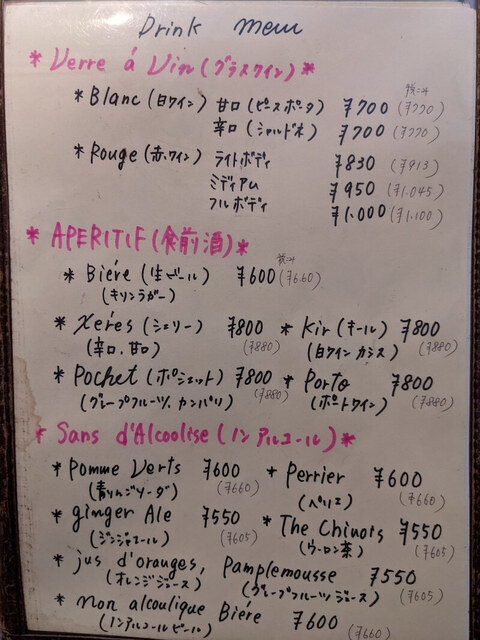 Drink menu
* Verre á Vin (グラスワイン) *
* Blanc (白ワイン) 甘口 (ピースポータ) ¥700 (¥770)
辛口 (シャルドネ) ¥700 (¥770)
* Rouge (赤ワイン) ライトボディ ¥830 (¥913)
ミディアム ¥950 (¥1.045)
フルボディ ¥1.000 (¥1.100)
* APERITIF (食前酒) *
* Biére (生ビール) ¥600 (¥660)
(キリンラガー)
* Xéres (シェリー) ¥800 * Kir (キール) ¥800
(辛口.甘口) (¥880) (白ワインカシス) (¥880)
* Pochet (ポシェット) ¥800 * Porto ¥800
(グレープフルーツ.カンパリ) (¥880) (ポートワイン) (¥880)
* Sans d'Alcoolise (ノンアルコール) *
* Pomme Verts ¥600 * Perrier ¥600
(青りんごソーダ) (¥660) (ペリエ) (¥660)
* ginger Ale ¥550 * The Chinots ¥550
(ジンジャエール) (¥605) (ウーロン茶) (¥605)
* jus d'oranges, Pamplemousse ¥550
(オレンジジュース) (グレープフルーツジュース) (¥605)
* non alcoulique Biére ¥600
(ノンアルコールビール) (¥660)